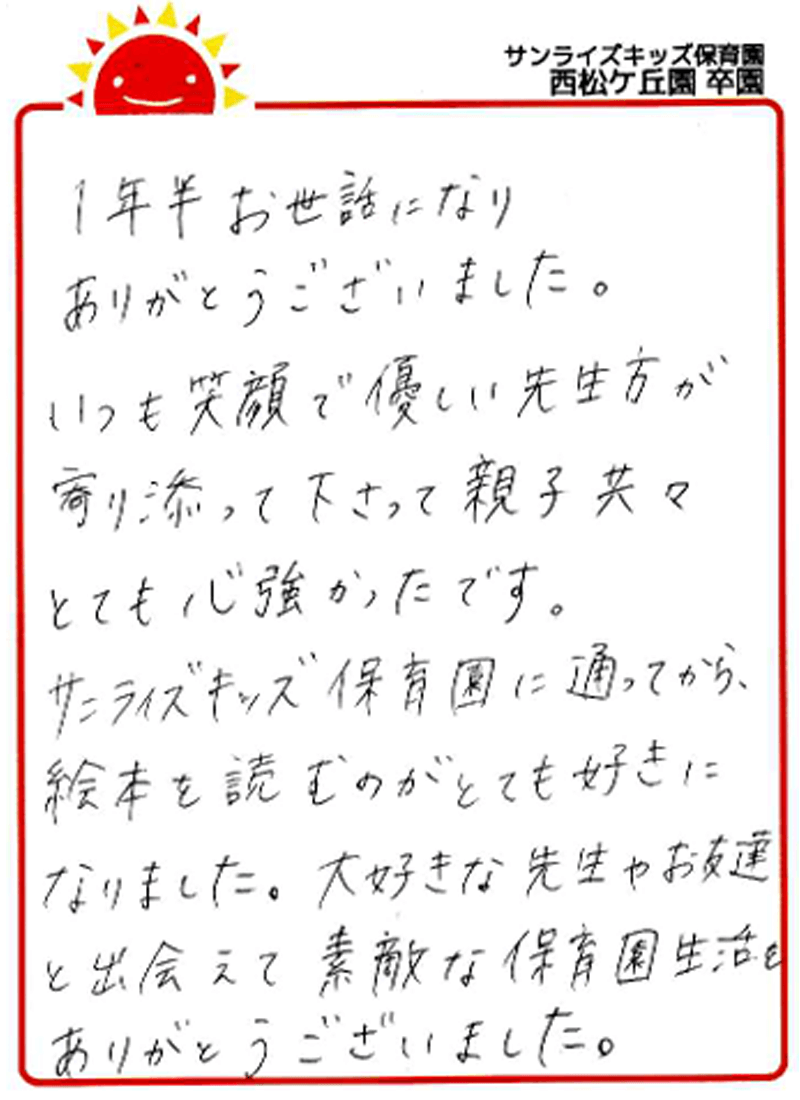 サンライズキッズ保育園
西松ケ丘園 卒園
1年半お世話になり
ありがとうございました。
いつも笑顔で優しい先生方が
寄り添って下さって親子共々
とても心強かったです。
サンライズキッズ保育園に通ってから、
絵本を読むのがとても好きに
なりました。大好きな先生やお友達
と出会えて素敵な保育園生活を
ありがとうございました。